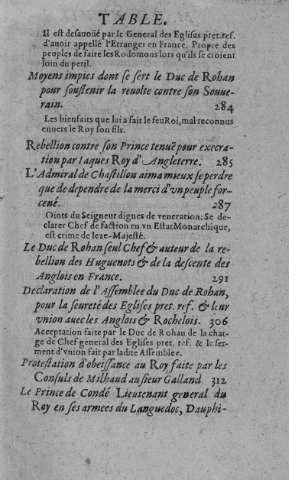 TABLE.
Il est desauoüé par le General des Eglises pret. ref.
d'auoir appellé l'Etranger en France. Propre des
peoples de faire les Rodomons lors qu'ils se croient
loin du peril.
Moyens impies dont se sert le Duc de Rohan
pour soustenir la reuolte contre son Souue-
rain. 284
Les bienfaits que lui a fait le feu Roi, mal reconnus
enuers le Roy son fils.
Rebellion contre son Prince tenuë pour execra-
tion par Iaques Roy d'Angleterre. 285
L'Admiral de Chastillou aima mieux se perdre
que de dependre de la merci d'vn peuple for-
cené. 287
Oints du Seigneur dignes de veneration: Se de-
clarer Chef de faction en vn Estat Monarchique,
est crime de leze-Majesté.
Le Duc de Rohan seul Chef & auteur de la re-
bellion des Huguenots & de la descente des
Anglois en France. 291
Declaration de l'Assemblee du Duc de Rohan,
pour la seureté des Eglises pret. ref. & leur
vnion auec les Anglois & Rochelois. 306
Acceptation faite par le Duc de Rohan de la char-
ge de Chef general des Eglises pret. ref. & le ser-
ment d'vnion fait par ladite Assemblee.
Protestation d'obeissance au Roy faite par les
Consuls de Milhaud au sieur Galland. 312
Le Prince de Condé Lieutenant general du
Roy en ses armees du Languedoc, Dauphi-